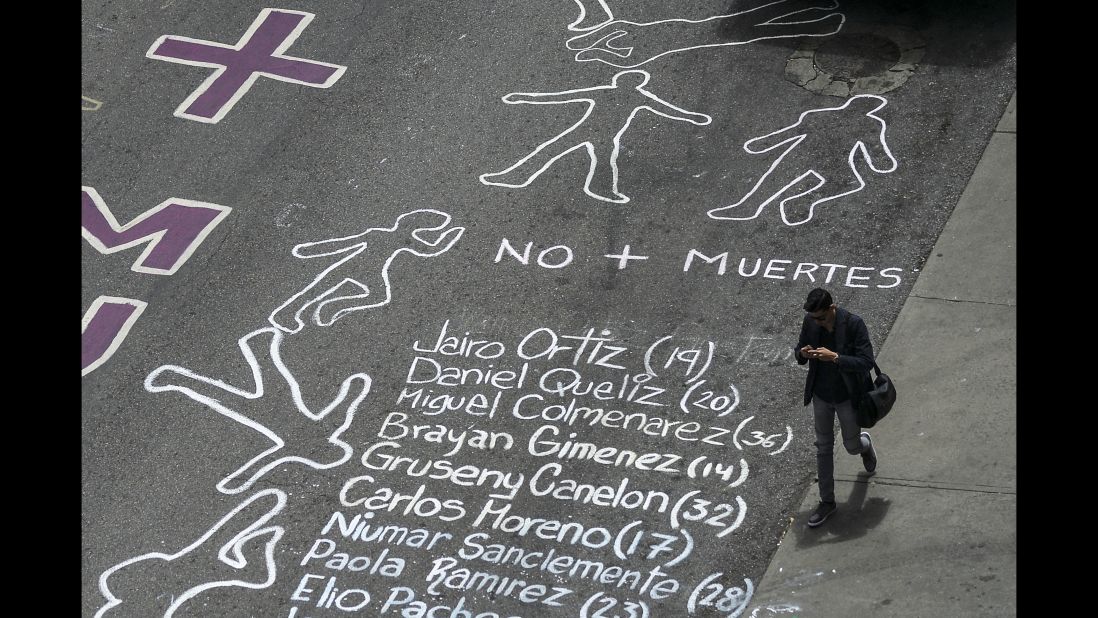 +
M
NO + MUERTES
Jairo Ortiz (19)
Daniel Queliz (20)
Miguel Colmenarez (36)
Brayan Gimenez (14)
Gruseny Canelon (32)
Carlos Moreno (17)
Niumar Sanclemente (28)
Paola Ramirez (23)
Elio